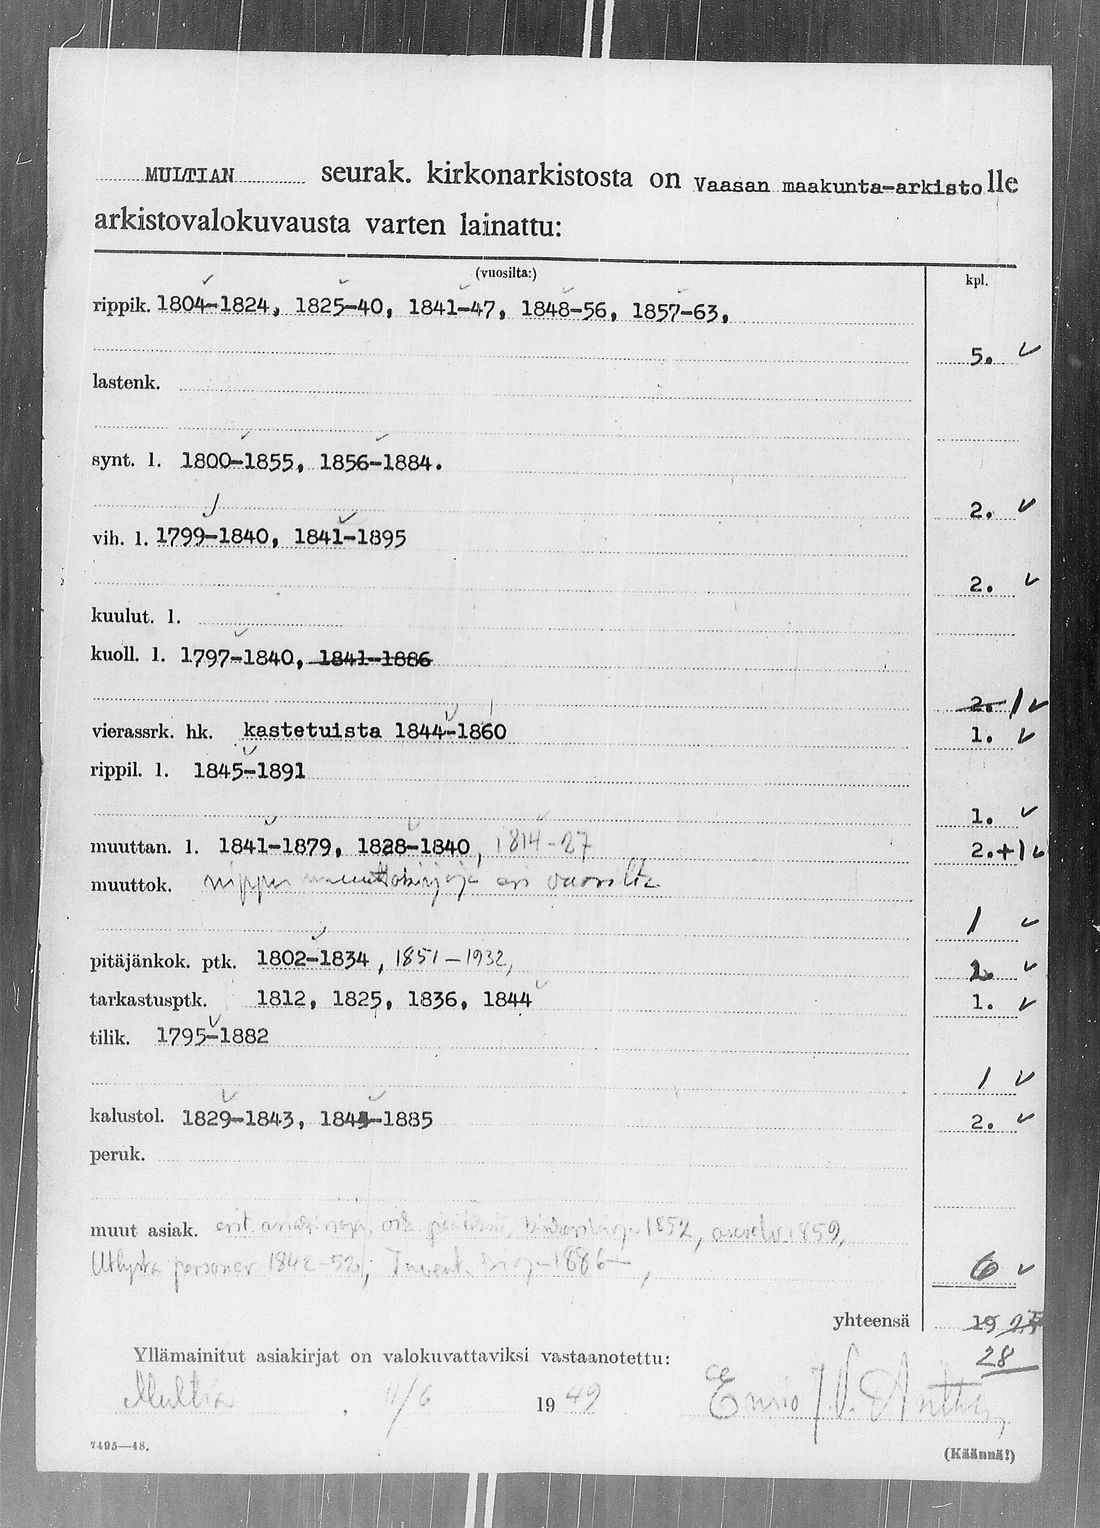 MULTIAN seurak. kirkonarkistosta on Vaasan maakunta-arkisto lle
arkistovalokuvausta varten lainattu:
(vuosilta:) kpl.
rippik. 1804-1824, 1825-40, 1841-47, 1848-56, 1857-63,
5. ✓
lastenk.
synt. l. 1800-1855, 1856-1884.
2. ✓
vih. l. 1799-1840, 1841-1895
2. ✓
kuulut. l.
kuoll. l. 1797-1840, 1841-1886
2. 1 ✓
vierassrk. hk. kastetuista 1844-1860 1. ✓
rippil. l. 1845-1891
1. ✓
muuttan. l. 1841-1879, 1828-1840, 1814-27 2.+1 ✓
muuttok. nippu muuttokirjoja eri vuosilta
1 ✓
pitäjänkok. ptk. 1802-1834, 1851-1932, ✓
tarkastusptk. 1812, 1825, 1836, 1844 1. ✓
tilik. 1795-1882
1 ✓
kalustol. 1829-1843, 1843-1885 2. ✓
peruk.
muut asiak. erit. asiakirjoja, 1852, 1859,
Utlysta personer 1842-52, Invent. kirja 1886-, 6 ✓
yhteensä 19 25
28
Yllämainitut asiakirjat on valokuvattaviksi vastaanotettu:
Multia 11/6 1949 J.V.
7495—48. (Käännä!)